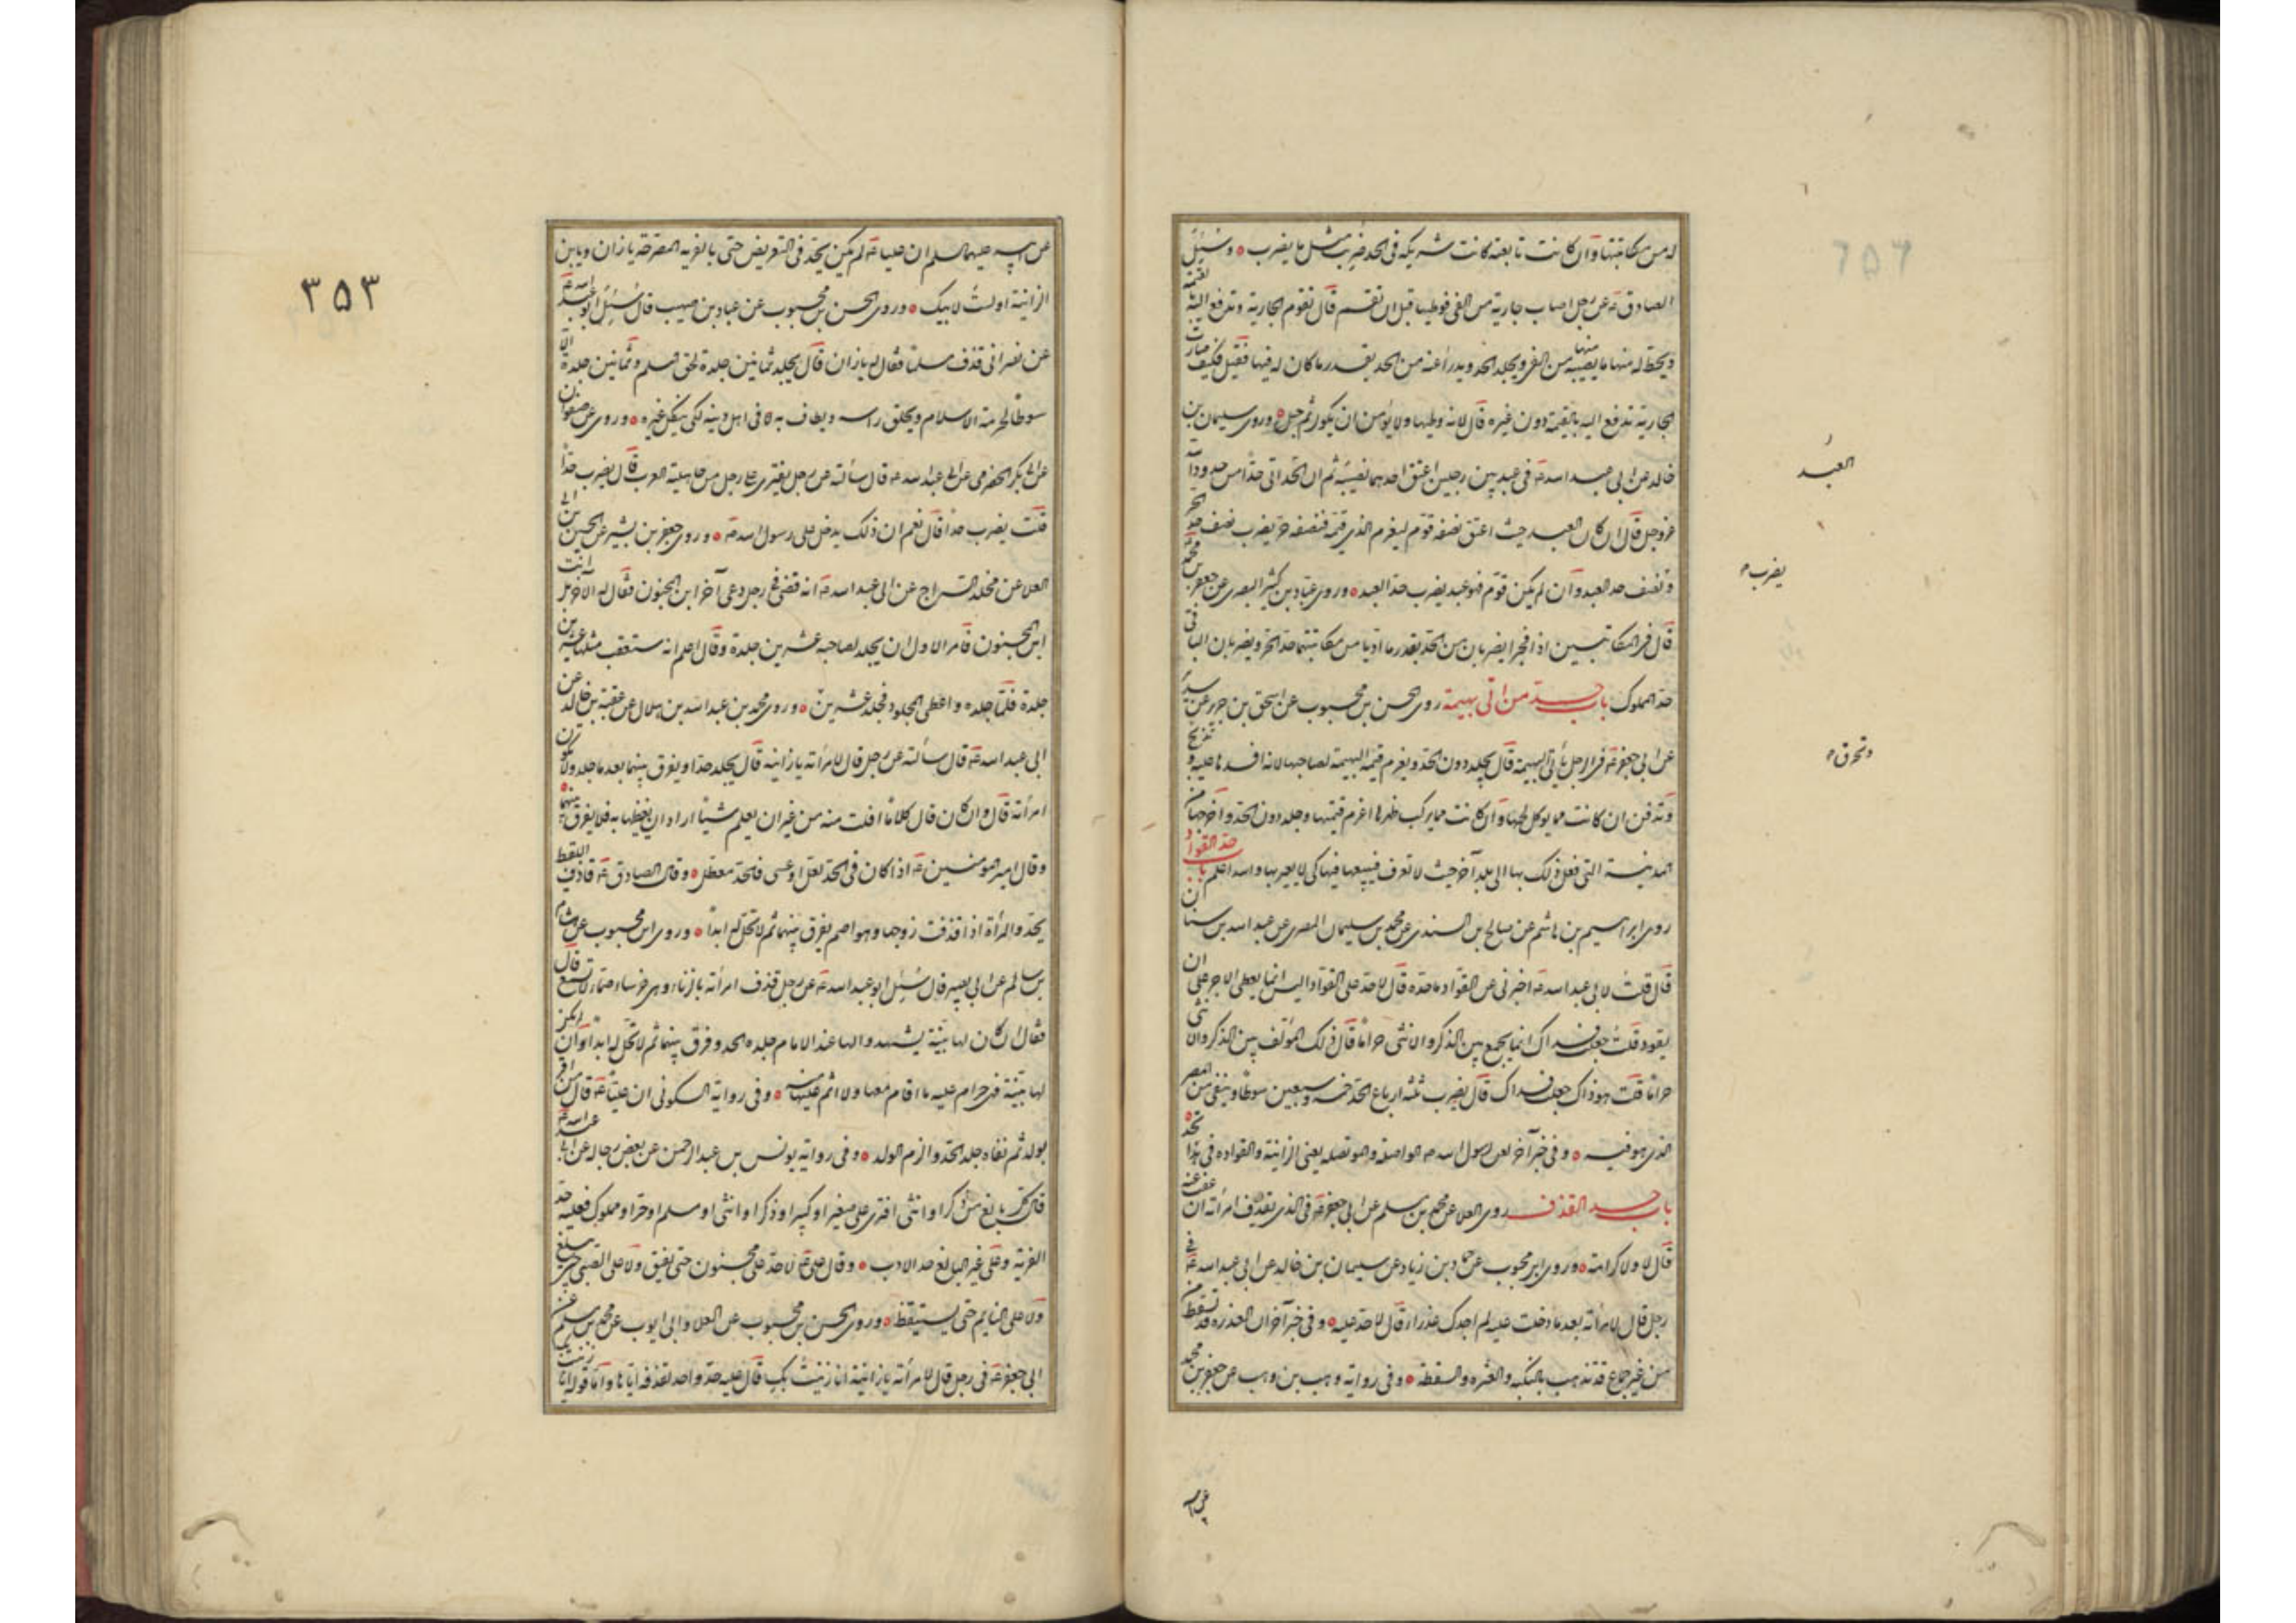 له من مكاتبتها وان كانت تابعته كانت شريكه فى الحد ضربت مثل ما يضرب ه وسئل
الصادق ع عن رجل اصاب جارية من الفئ فوطيها قبل ان تقسم قال تقوم الجارية وتدفع اليه بالقيمة
ويحط له منها ما يصيبه منها من الفئ ويجلد الحد ويدرأ عنه من الحد بقدر ما كان له فيها فقيل فكيف صارت
الجارية تدفع اليه بالقيمة دون غيره قال لانه وطيها ولا يؤمن ان يكون ثم حبل ه وروى سليمان بن
خالد عن ابى عبد الله ع فى عبد بين رجلين اعتق احدهما نصيبه ثم ان العبد اتى حدا من حدود الله
عز وجل قال ان كان العبد حيث اعتق نصفه قوم ليغرم الذى قيمته فنصفه حر يضرب نصف حد الحر
ونصف حد العبد وان لم يكن قوم فهو عبد يضرب حد العبد ه وروى عباد بن كثير البصرى عن جعفر بن محمد ع
قال فى المكاتبين اذا فجرا يضربان من الحد بقدر ما اديا من مكاتبتهما حد الحر ويضربان الباقى
حد المملوك باب حد من اتى بهيمة روى الحسن بن محبوب عن اسحق بن جرير عن سدير
عن ابى جعفر ع فى الرجل يأتى البهيمة قال يجلد دون الحد ويغرم قيمة البهيمة لصاحبها لانه افسدها عليه وتذبح
وتدفن ان كانت مما يوكل لحمها وان كانت مما يركب ظهرها اغرم قيمتها وجلد دون الحد واخرجها من
المدينة التى فعل ذلك بها الى بلد آخر حيث لا تعرف فيبيعها فيها كى لا يعير بها والله اعلم باب حد القواد
روى ابراهيم بن هاشم عن صالح بن السندى عن محمد بن سليمان المصرى عن عبد الله بن سنان
قال قلت لابى عبد الله ع اخبرنى عن القواد ما حده قال لا حد على القواد اليس انما يعطى الاجر على ان
يقود قلت جعلت فداك انما يجمع بين الذكر والانثى حراما قال ذلك المؤلف بين الذكر والانثى
حراما قلت هو ذاك جعلت فداك قال يضرب ثلثة ارباع الحد خمسة وسبعين سوطا وينفى من المصر
الذى هو فيه ه وفى خبر آخر لعن رسول الله ص الواصلة والموتصلة يعنى الزانية والقوادة فى هذا
باب حد القذف روى العلا عن محمد بن مسلم عن ابى جعفر ع فى الذى يقذف امرأته ان عفت عنه
قال لا ولا كرامة ه وروى ابن محبوب عن حماد بن زياد عن سليمان بن خالد عن ابى عبد الله ع فى
رجل قال لامرأته بعد ما دخلت عليه لم اجدك عذراء قال لا حد عليه ه وفى خبر آخر ان العذرة قد تسقط من
من غير جماع قد تذهب بالنكبة والعثرة والسقطة ه وفى رواية وهب بن وهب عن جعفر بن محمد
العبد
يضرب
وتحرق
عن ابيه
٣٥٣
عن ابيه عليهما السلم ان عليا ع لم يكن يحد فى التعريض حتى يأتى بالفرية المصرحة يا زان ويا بن
الزانية او لست لابيك ه وروى الحسن بن محبوب عن عباد بن صهيب قال سئل ابو عبد الله ع
عن نصرانى قذف مسلما فقال له يا زان قال يجلد ثمانين جلدة لحق المسلم وثمانين جلدة الا
سوطا لحرمة الاسلام ويحلق راسه ويطاف به فى اهل دينه لكى ينكل غيره ه وروى عن صفوان
عن ابى بكر الحضرمى عن ابى عبد الله ع قال سألته عن رجل يفترى على رجل من جاهلية العرب قال يضرب حدا
قلت يضرب حدا قال نعم ان ذلك يدخل على رسول الله ص ه وروى جعفر بن بشير عن الحسين بن ابى
العلا عن مخلد السراج عن ابى عبد الله ع انه قضى فى رجل دعى آخر ابن المجنون فقال له الآخر بل انت
ابن المجنون فامر الاول ان يجلد لصاحبه عشرين جلدة وقال اعلم انه ستعقب مثلها عشرين
جلدة فلما جلده واعطى المجلود فجلد عشرين ه وروى محمد بن عبد الله بن هلال عن عقبة بن خالد عن
ابى عبد الله ع قال سألته عن رجل قال لامرأته يا زانية قال يجلد حدا ويفرق بينهما بعد ما جلد ولا تكون
امرأته قال وان كان قال كلاما افلت منه من غير ان يعلم شيئا اراد ان يغيظها به فلا يفرق بينهما ه
وقال امير المومنين ع اذا كان فى الحد لعل او عسى فالحد معطل ه وقال الصادق ع قاذف اللقيط
يحد والمرأة اذا قذفت زوجها وهو اصم يفرق بينهما ثم لا تحل له ابدا ه وروى ابن محبوب عن هشام
بن سالم عن ابى بصير قال سئل ابو عبد الله ع عن رجل قذف امرأته بالزناء وهى خرساء صماء لا تسمع قال
فقال ان كان لها بينة يشهدوا لها عند الامام جلده الحد وفرق بينهما ثم لا تحل له ابدا وان لم يكن
لها بينة فهى حرام عليه ما اقام معها ولا اثم عليها منه ه وفى رواية السكونى ان عليا ع قال من اقر
بولد ثم نفاه جلد الحد والزم الولد ه وفى رواية يونس بن عبد الرحمن عن بعض رجاله عن ابى عبد الله ع
قال كل بالغ من ذكر او انثى افترى على صغير او كبير او ذكر او انثى او مسلم او حر او مملوك فعليه حد
الفرية وعلى غير البالغ حد الادب ه وقال على ع لا حد على مجنون حتى يفيق ولا على الصبى حتى يبلغ
ولا على النايم حتى يستيقظ ه وروى الحسن بن محبوب عن العلا وابى ايوب عن محمد بن مسلم عن
ابى جعفر ع فى رجل قال لامرأته يا زانية انا زنيت بك قال عليه حد واحد لقذفه اياها واما قوله انا زنيت بك